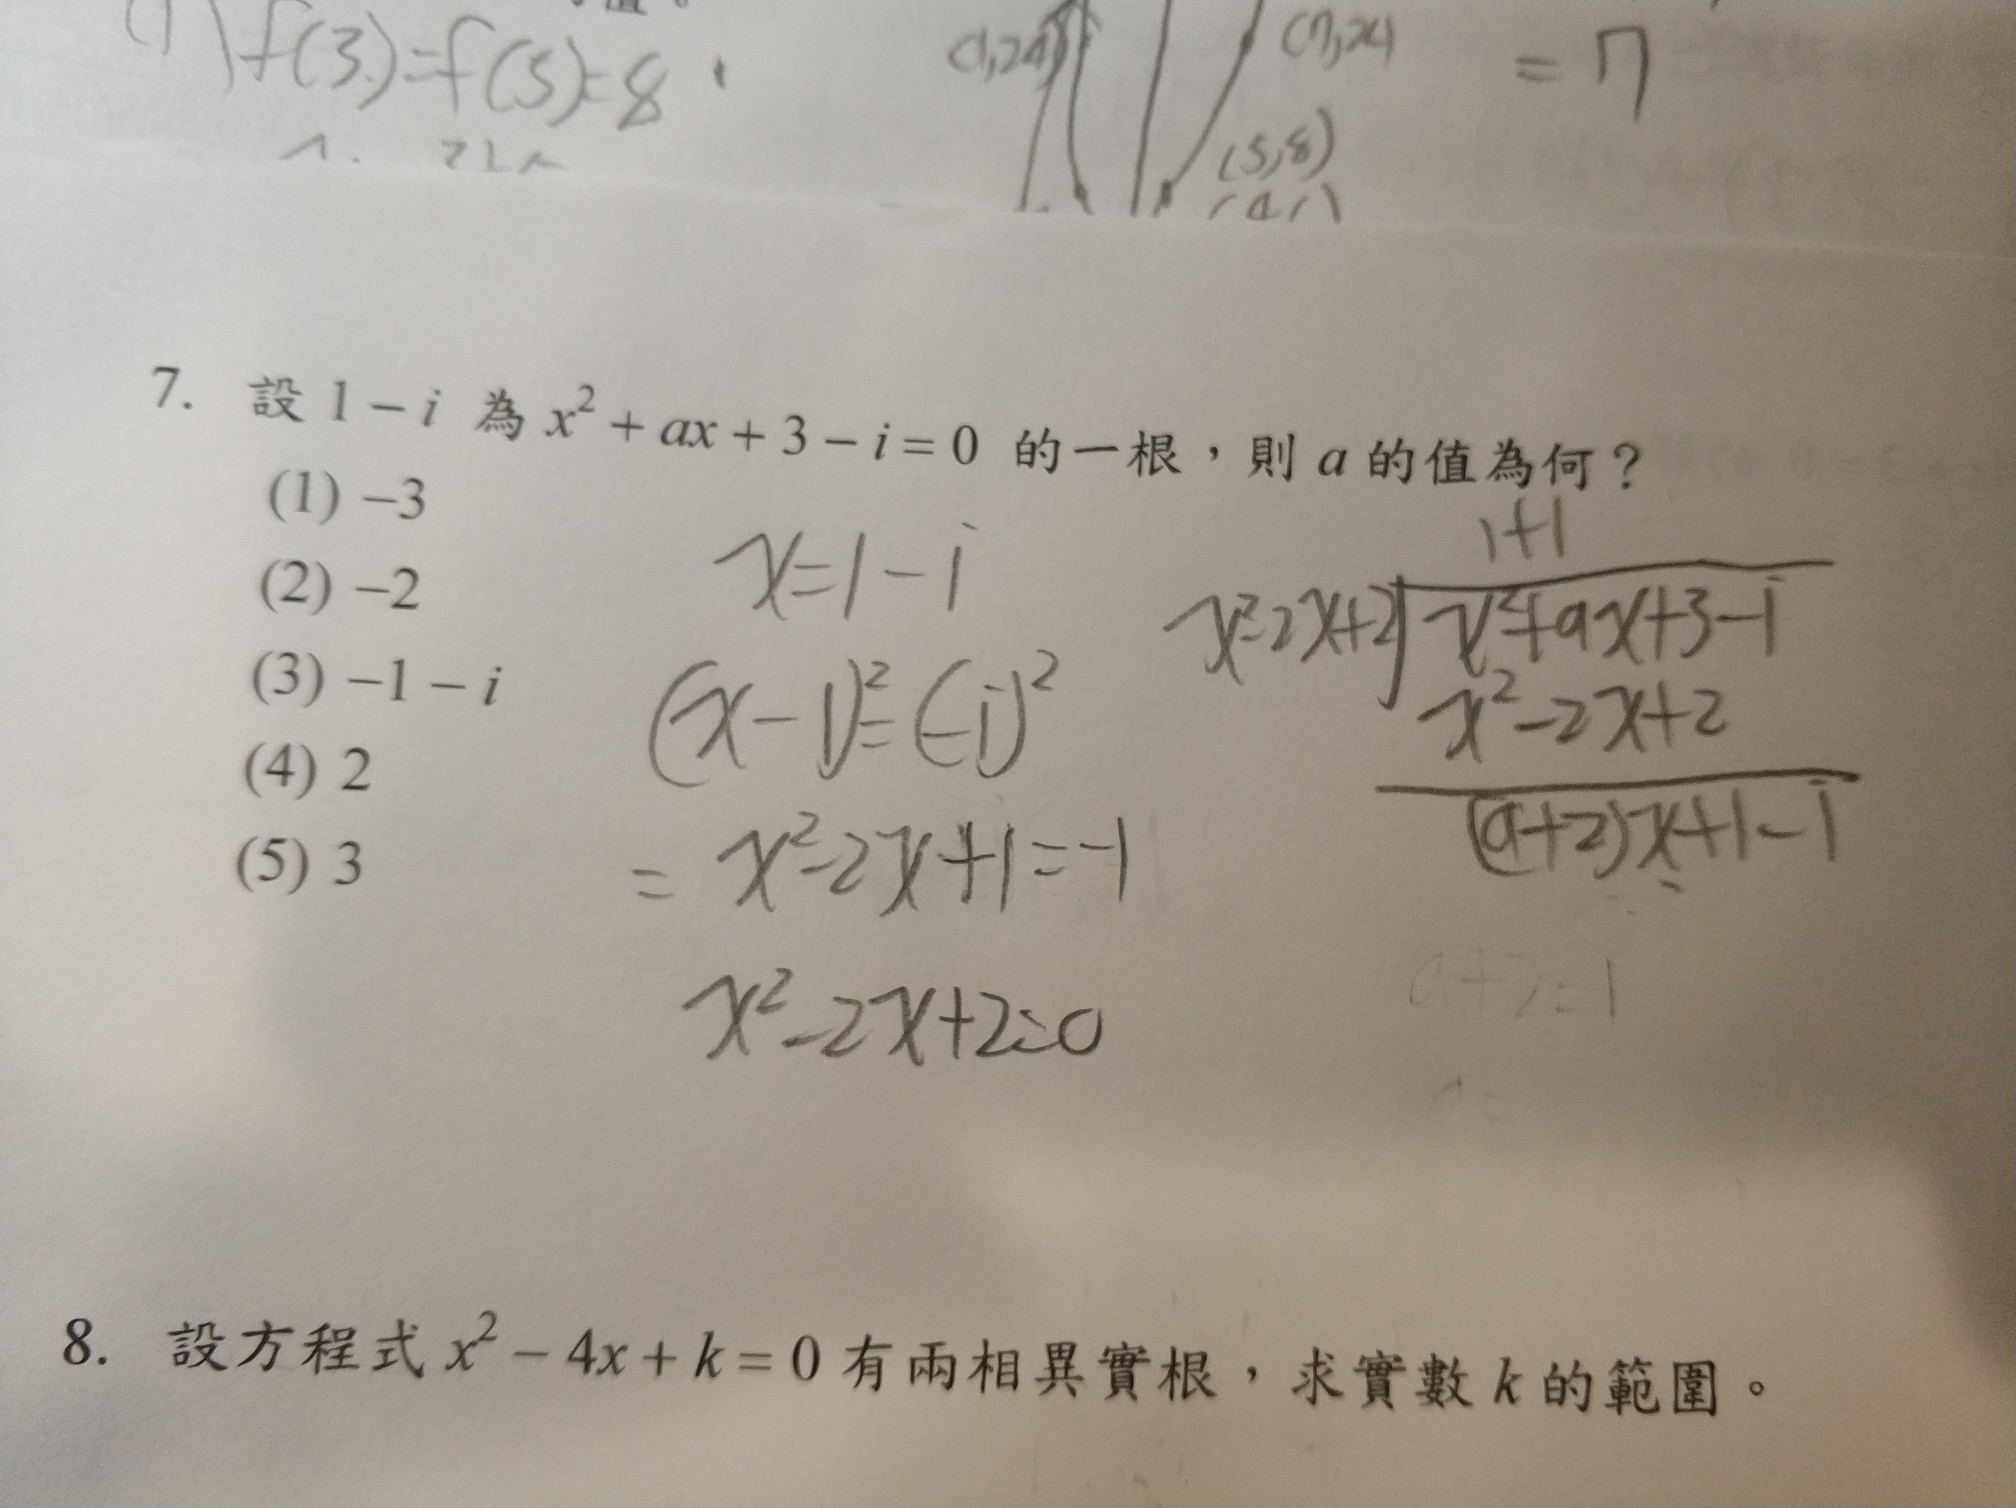 值。
(1) f(3)=f(5)=8,
(1,24)
(7,24)
= 7
(5,8)
7. 設 1 − i 為 x² + ax + 3 − i = 0 的一根，則 a 的值為何？
(1) −3
(2) −2
(3) −1 − i
(4) 2
(5) 3
x=1-i
(x-1)²=(-i)²
= x²-2x+1=-1
x²-2x+2=0
1+1
x²-2x+2) x²+ax+3-i
x²-2x+2
(a+2)x+1-i
a+2=1
a=
8. 設方程式 x² − 4x + k = 0 有兩相異實根，求實數 k 的範圍。